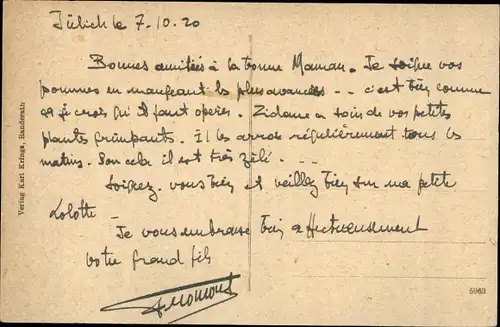 Jülich le 7.10.20
Bonnes amitiés à la bonne Maman. Je soigne vos
pommes en mangeant les plus avancées -- c'est bien comme
ça je crois qu'il faut opérer. Zidame a soin de vos petites
plantes grimpants. Il les arrose régulièrement tous les
matins. Pour cela il est très zélé. ---
Soignez-vous bien et veillez bien sur ma petite
Lolotte -
Je vous embrasse bien affectueusement
votre grand fils
Verlag Karl Krings, Randerath
5963